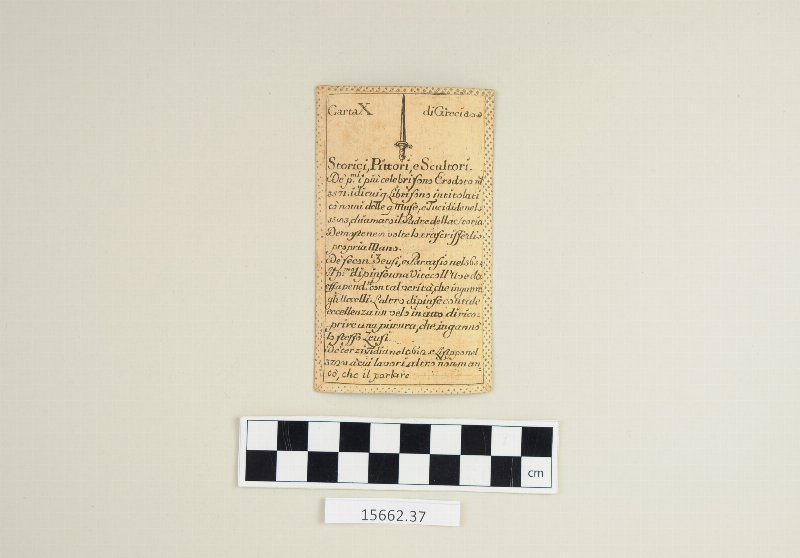 Carta X di Grecia
Storici, Pittori, e Scultori.
De p.mi i più celebri sono Erodoto nel
3571. i di cui 9 Libri sono intitolati
co nomi delle 9 Muse, e Tucidide nel
chiamato il Padre della Storia
Demostene volte lo trascrisse di
propria Mano.
De secon. Zeusi, e Parrasio nel
Il p.mo dipinse una Vite coll' Uve da
essa pend.ti con tal verità, che ingannò
gli Uccelli. L'altro dipinse con tale
eccellenza un velo in atto di rico-
prire una pittura, che ingannò
lo stesso Zeusi.
De terzi Fidia nel e Lisippo nel
a cui lavori altro non man
cò, che il parlare
cm
15662.37